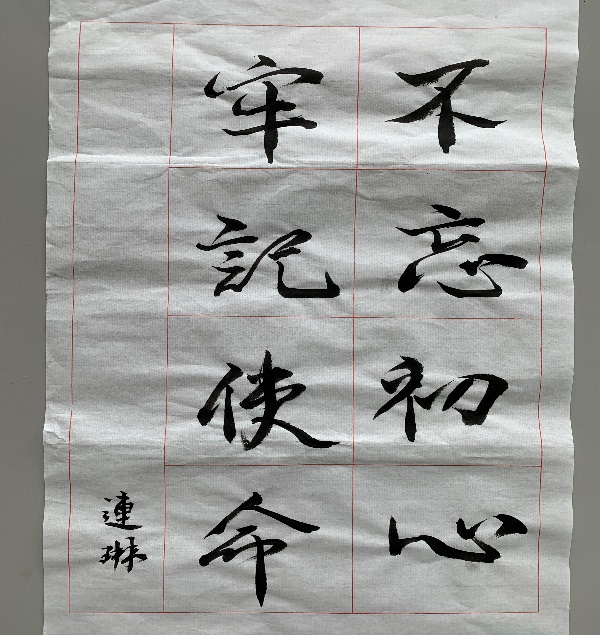 不忘初心
牢記使命
連琳